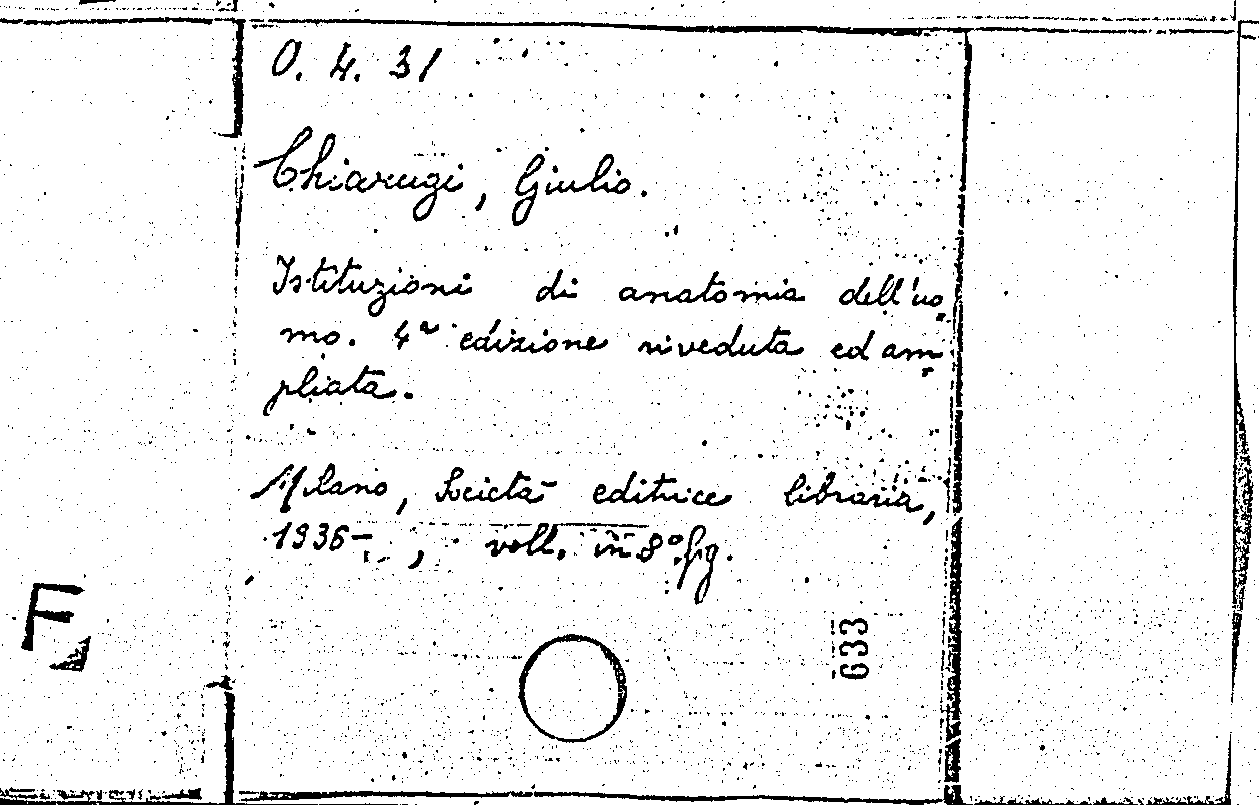 O. 4. 31
Chiarugi, Giulio.
Istituzioni di anatomia dell'uo-
mo. 4ª edizione riveduta ed am-
pliata.
Milano, Società editrice libraria,
1936- , voll. in 8° fig.
633
F